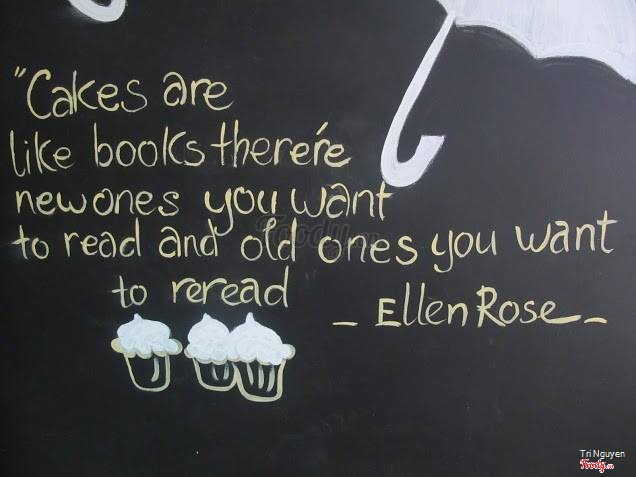 "Cakes are
like books there're
new ones you want
to read and old ones you want
to reread
_ Ellen Rose _
Foody.vn
Tri Nguyen
Foody.vn